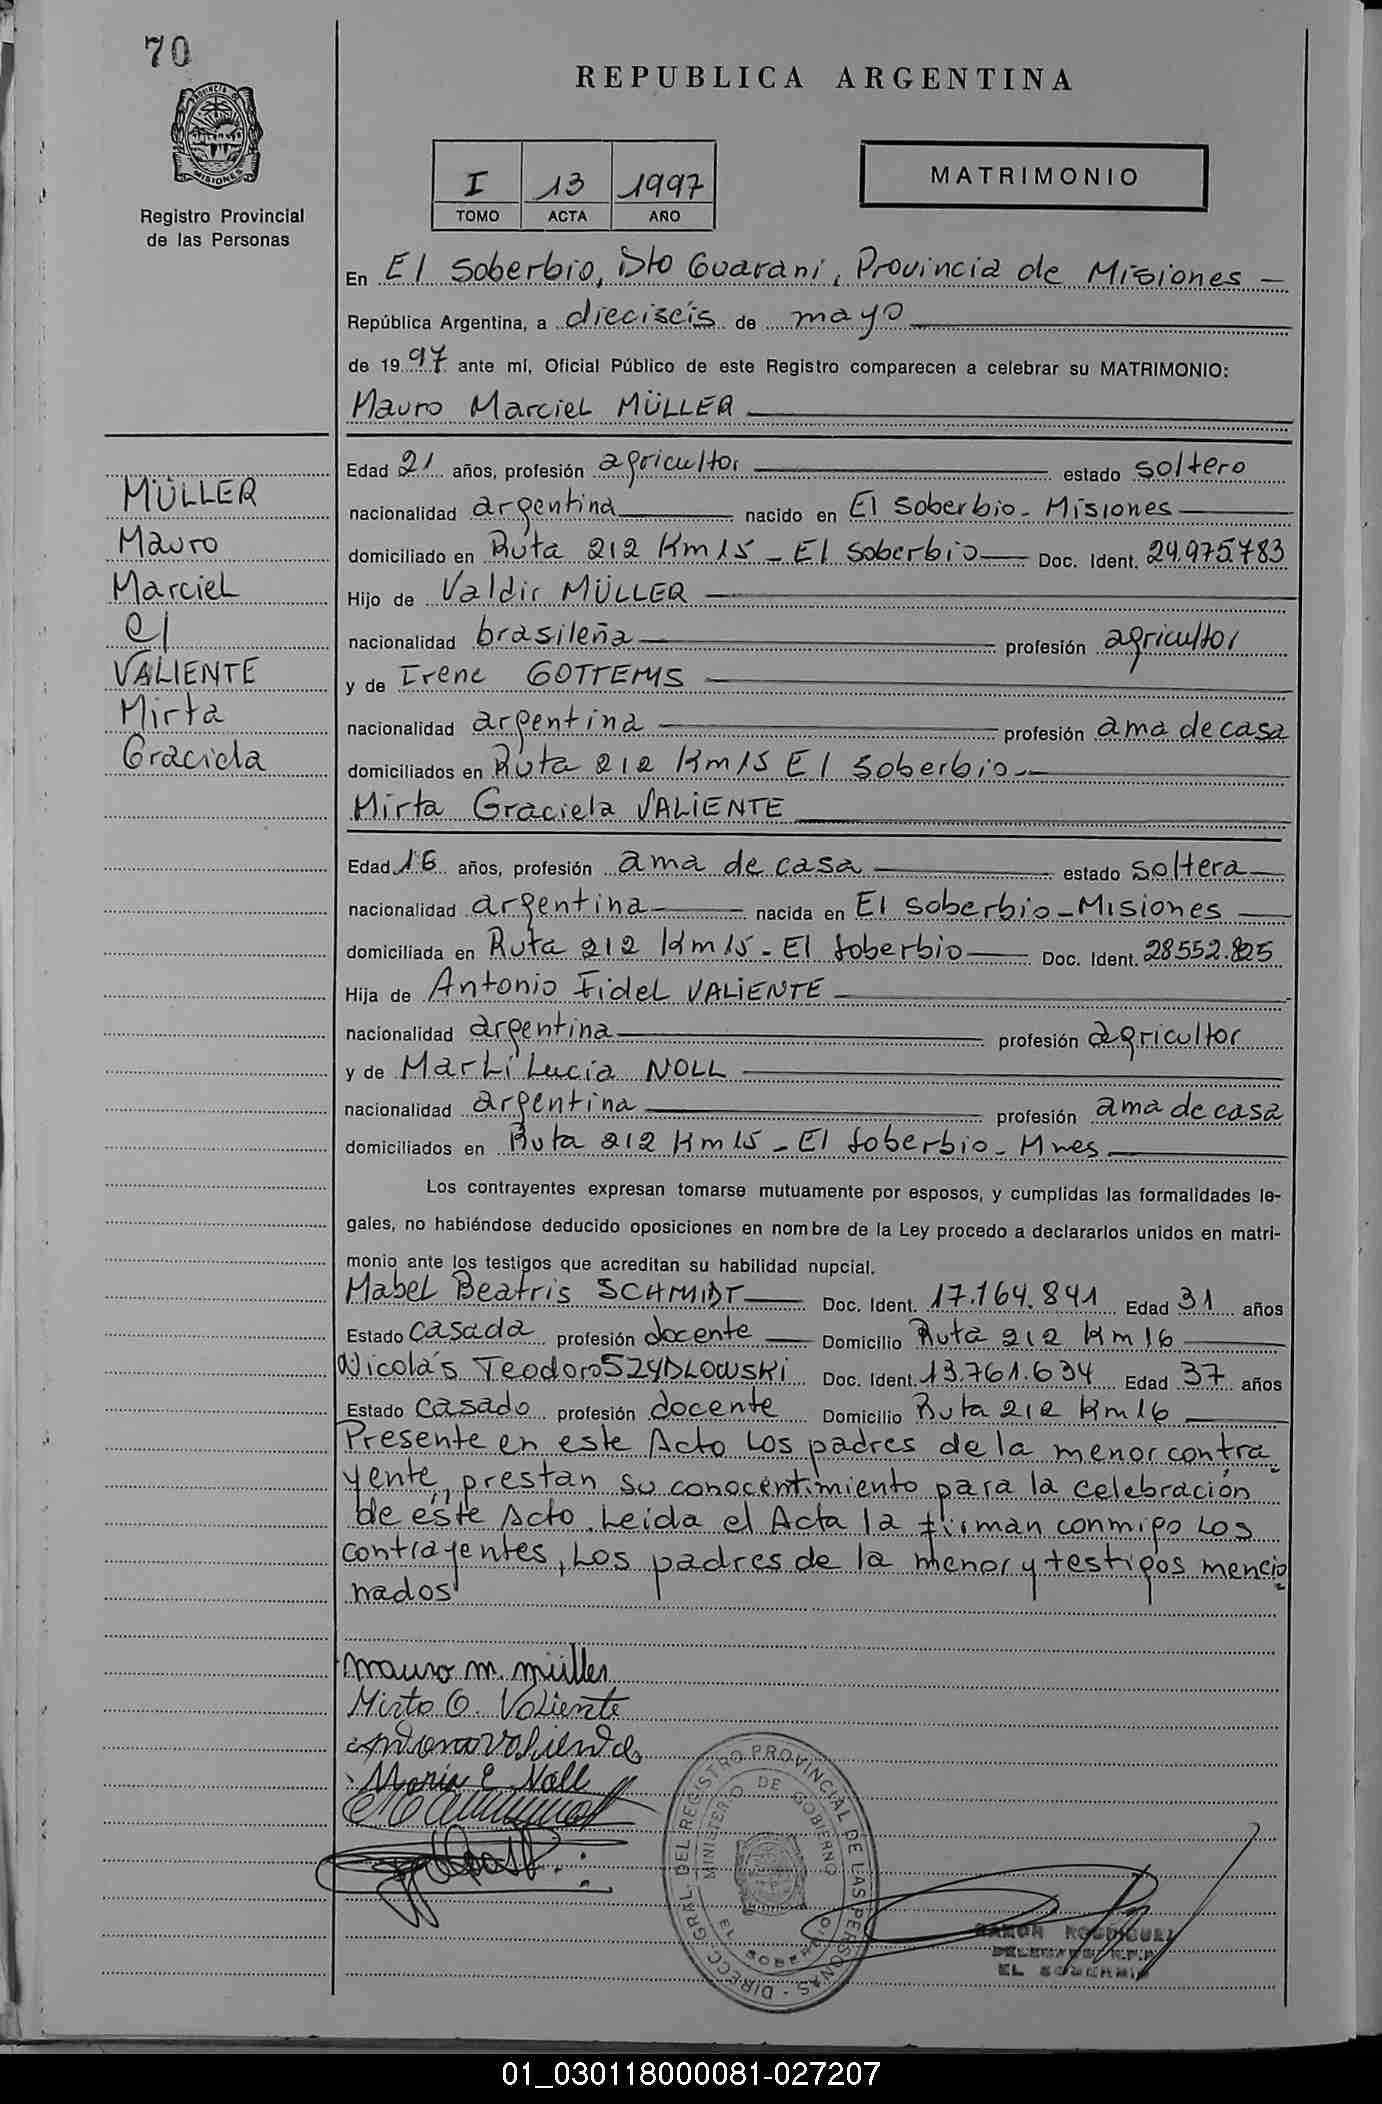 70
REPUBLICA ARGENTINA
PROVINCIA DE
MISIONES
Registro Provincial
de las Personas
I 13 1997
TOMO ACTA AÑO
MATRIMONIO
En El Soberbio, Dto Guaraní, Provincia de Misiones —
República Argentina, a dieciseís de mayo
de 19 97 ante mí, Oficial Público de este Registro comparecen a celebrar su MATRIMONIO:
Mauro Marciel MÜLLER
MÜLLER
Mauro
Marciel
c/
VALIENTE
Mirta
Graciela
Edad 21 años, profesión agricultor estado soltero
nacionalidad argentina nacido en El Soberbio - Misiones
domiciliado en Ruta 212 Km 15 - El Soberbio Doc. Ident. 24.975.783
Hijo de Valdir MÜLLER
nacionalidad brasileña profesión agricultor
y de Irene GOTTEMS
nacionalidad argentina profesión ama de casa
domiciliados en Ruta 212 Km 15 El Soberbio -
Mirta Graciela VALIENTE
Edad 16 años, profesión ama de casa estado soltera
nacionalidad argentina nacida en El Soberbio - Misiones
domiciliada en Ruta 212 Km 15 - El Soberbio Doc. Ident. 28.552.825
Hija de Antonio Fidel VALIENTE
nacionalidad argentina profesión agricultor
y de Marli Lucia NOLL
nacionalidad argentina profesión ama de casa
domiciliados en Ruta 212 Km 15 - El Soberbio - Mnes
Los contrayentes expresan tomarse mutuamente por esposos, y cumplidas las formalidades le-
gales, no habiéndose deducido oposiciones en nombre de la Ley procedo a declararlos unidos en matri-
monio ante los testigos que acreditan su habilidad nupcial.
Mabel Beatris SCHMIDT Doc. Ident. 17.164.841 Edad 31 años
Estado casada profesión docente Domicilio Ruta 212 Km 16
Nicolás Teodoro SZYDLOWSKI Doc. Ident. 13.761.634 Edad 37 años
Estado casado profesión docente Domicilio Ruta 212 Km 16
Presente en este Acto los padres de la menor contra
yente, prestan su conocentimiento para la celebración
de éste Acto. Leída el Acta la firman conmigo los
contrayentes, los padres de la menor y testigos mencio
nados
Mauro m. müller
Mirta G. Valiente
Noll
DIRECC. GRAL. DEL REGISTRO PROVINCIAL DE LAS PERSONAS -
MINISTERIO DE GOBIERNO
EL SOBERBIO
RAMON RODRIGUEZ
DELEGADO R.P.P.
EL SOBERBIO
01_030118000081-027207